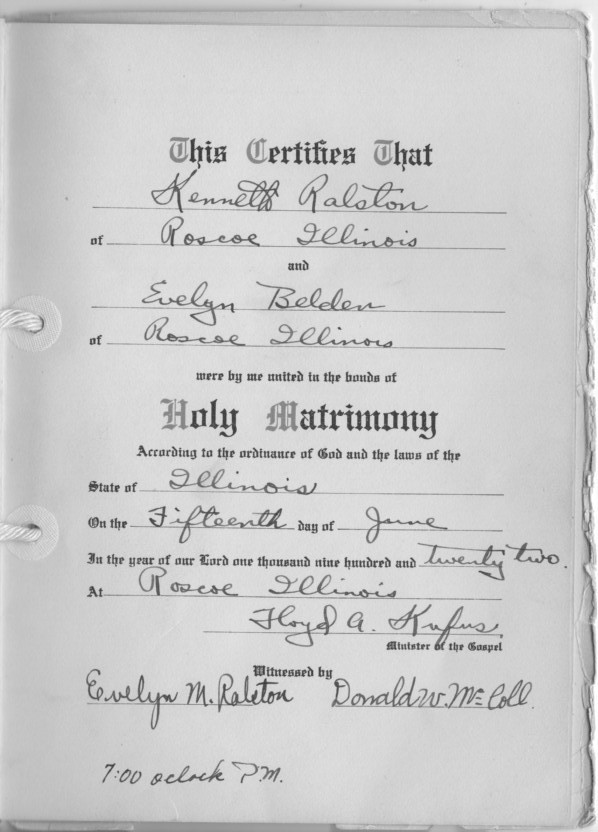 This Certifies That
Kenneth Ralston
of Roscoe Illinois
and
Evelyn Belden
of Roscoe Illinois
were by me united in the bonds of
Holy Matrimony
According to the ordinance of God and the laws of the
State of Illinois
On the Fifteenth day of June
In the year of our Lord one thousand nine hundred and twenty two.
At Roscoe Illinois
Floyd A. Kufus.
Minister of the Gospel
Witnessed by
Evelyn M. Ralston Donald W. McColl.
7:00 oclock P.M.